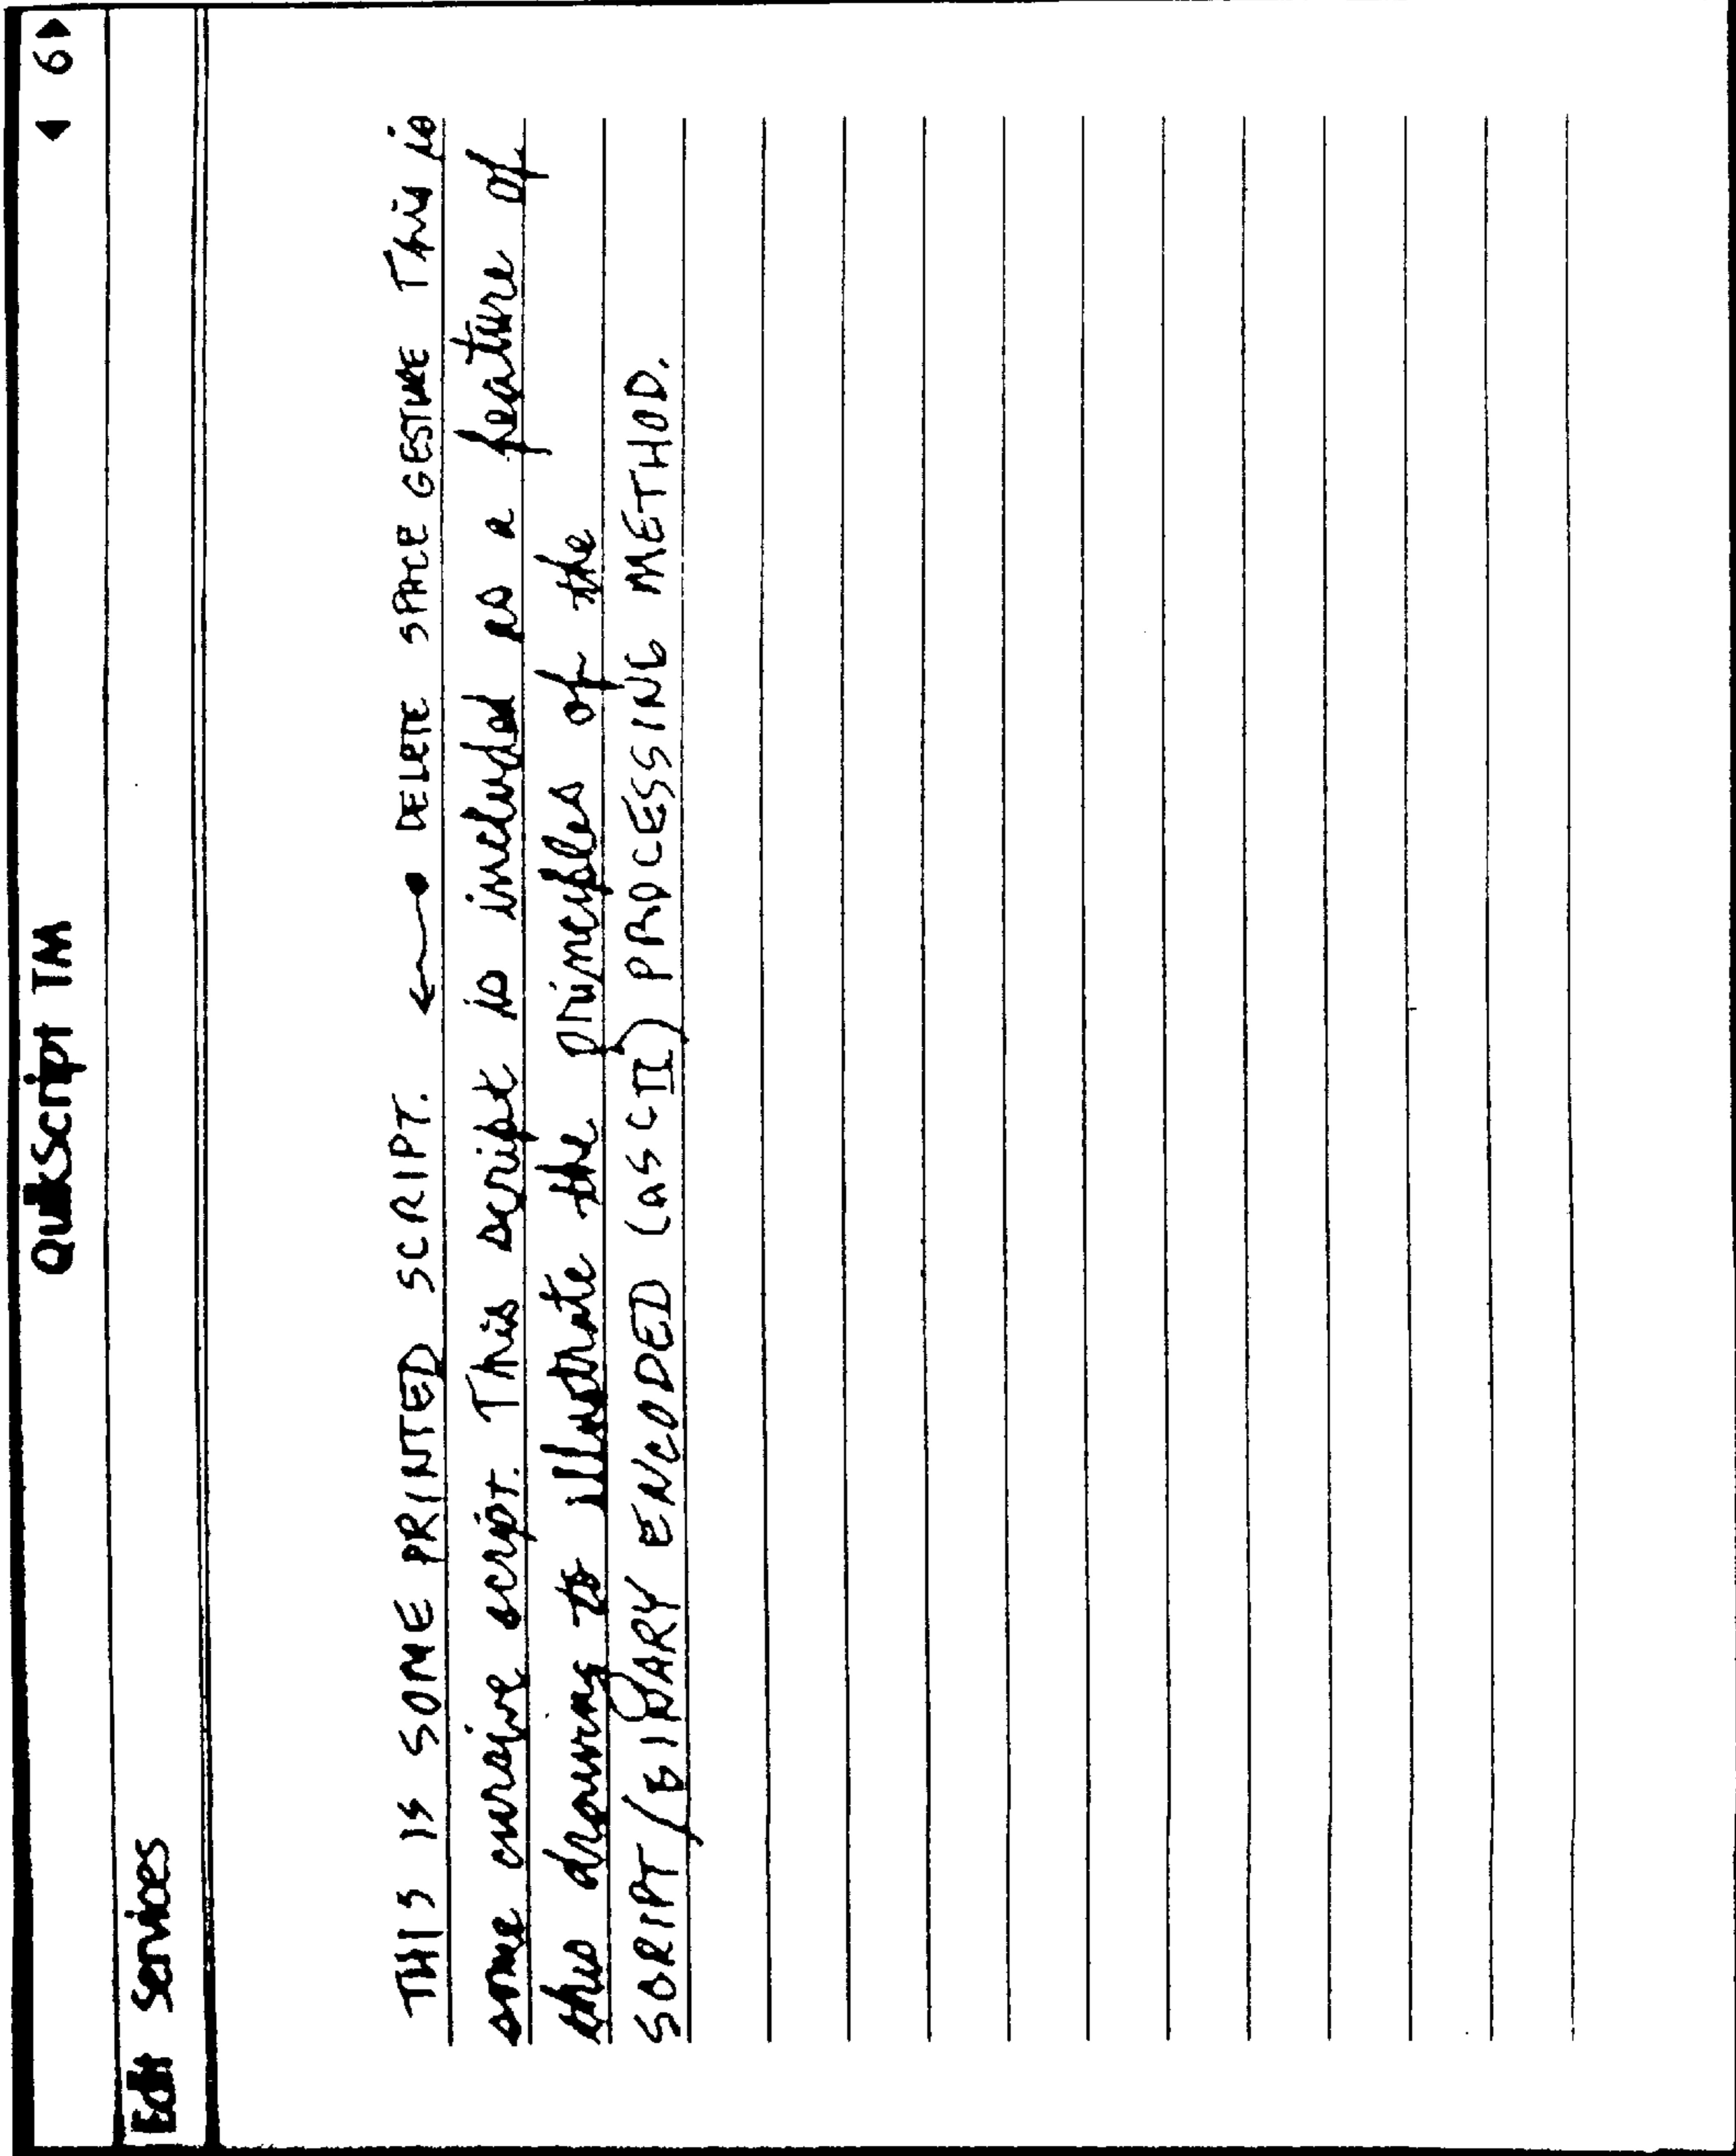 QuikScript TM
◀ 6 ▶
Edit Services
THIS IS SOME PRINTED SCRIPT. ← DELETE SPACE GESTURE This is
some cursive script. This script is included as a feature of
this drawing to illustrate the principles of the
SCRIPT/BINARY ENCODED (ASCII) PROCESSING METHOD.